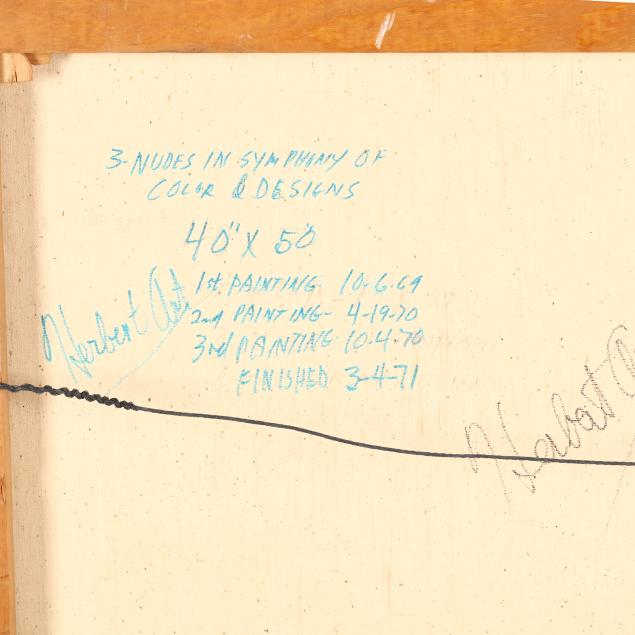 3-NUDES IN SYMPHONY OF
COLOR & DESIGNS
40" X 50
1st PAINTING 10-6-69
2nd PAINTING- 4-19-70
3rd PAINTING 10-4-70
FINISHED 3-4-71
Herbert Art
Herbert